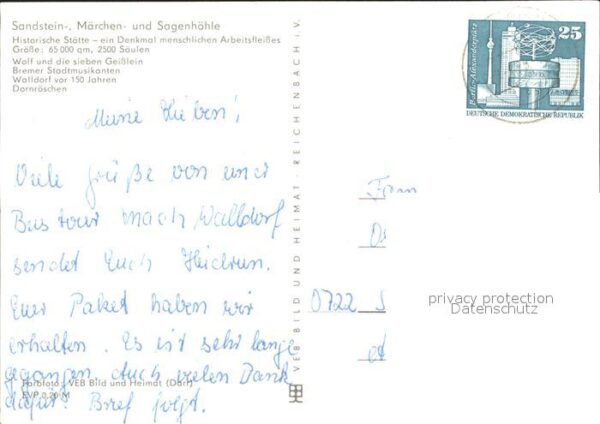 Sandstein-, Märchen- und Sagenhöhle
Historische Stätte – ein Denkmal menschlichen Arbeitsfleißes
Größe: 65 000 qm, 2500 Säulen
Wolf und die sieben Geißlein
Bremer Stadtmusikanten
Walldorf vor 150 Jahren
Dornröschen
Meine Lieben!
Viele Grüße von einer
Bus tour nach Walldorf
sendet Euch Heidrun.
Euer Paket haben wir
erhalten. Es ist sehr lange
gegangen. Auch vielen Dank
dafür! Brief folgt.
Farbfoto: VEB Bild und Heimat (Darr)
EVP 0,20 M
VEB BILD UND HEIMAT · REICHENBACH i. V.
25
Berlin-Alexanderplatz
DEUTSCHE DEMOKRATISCHE REPUBLIK
Fam
0722
privacy protection
Datenschutz